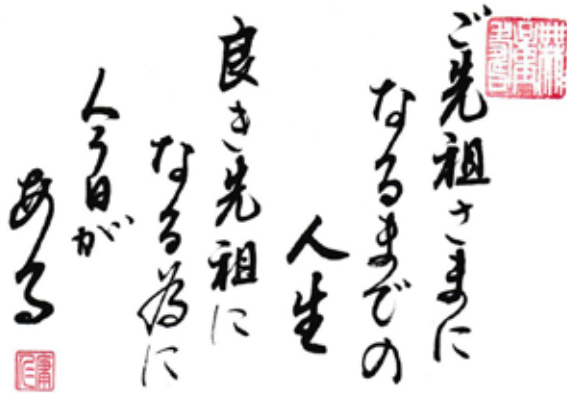 ご先祖さまに
なるまでの
人生
良き先祖に
なる為に
今日が
ある